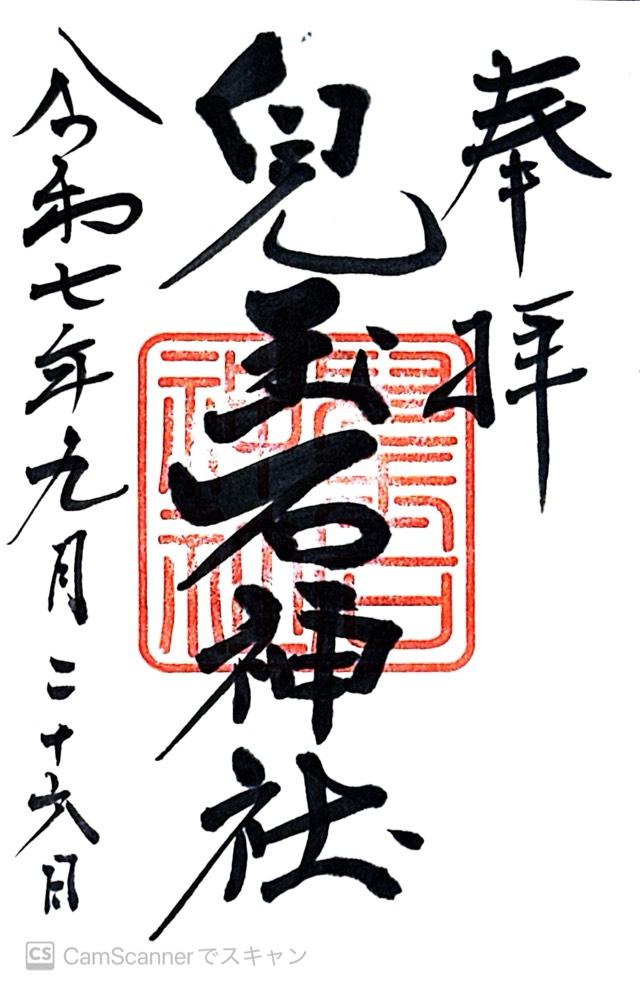 奉拝
兒玉石神社
令和七年九月二十六日
CS CamScannerでスキャン